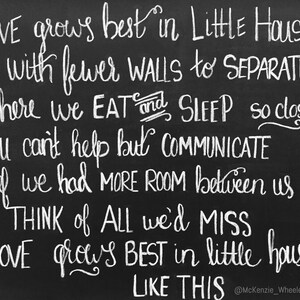 VE grows best in LITTLE HOUS
with fewer WALLS to SEPARAT
here we EAT and SLEEP so clos
u can't help but COMMUNICATE
f we had MORE ROOM between us
THINK of ALL we'd MISS
OVE grows BEST in little hous
LIKE THIS
@McKenzie_Wheele